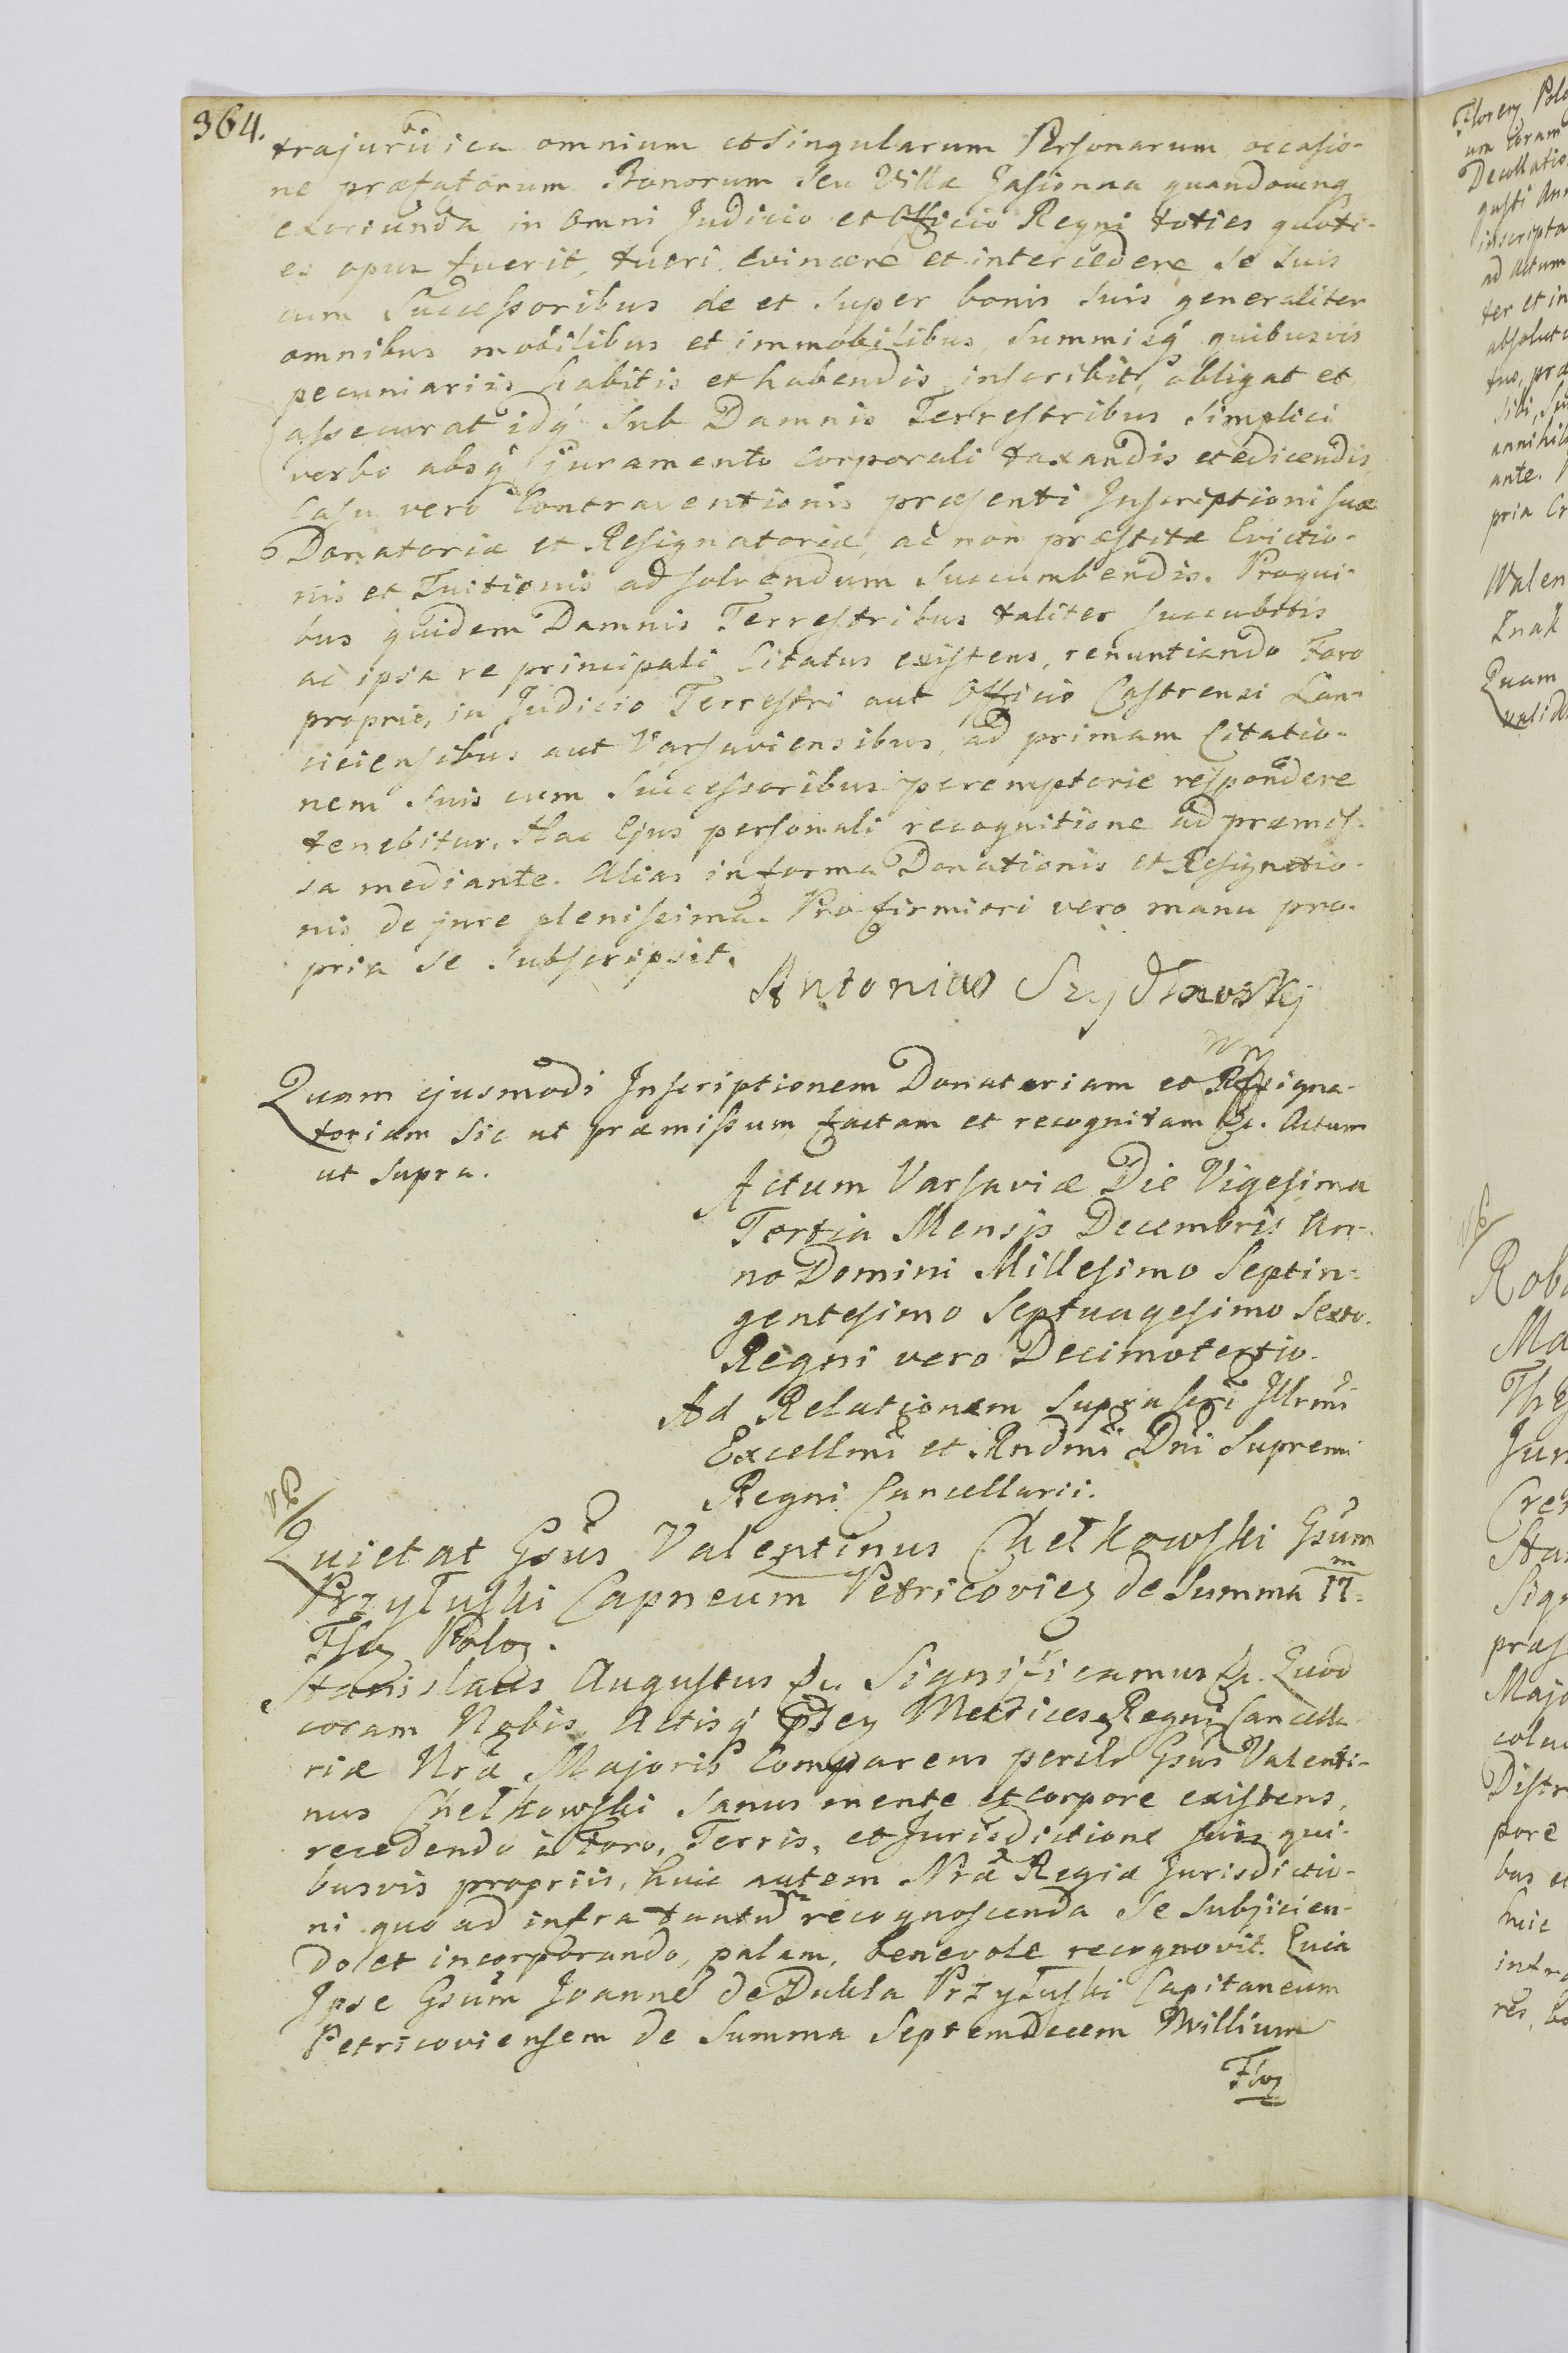 364.
trajuridica omnium et Singularum Personarum, occasio-
ne præfatorum Bonorum Seu Villæ Jasionna quandocunq
exoriunda in omni Judicio et Officio Regni toties quoti-
es opus fuerit, tueri, evincere et intercedere, Se Suis
cum Successoribus de et Super bonis Suis generaliter
omnibus mobilibus et immobilibus, Summisq quibusvis
pecuniariis habitis et habendis, inscribit, obligat et
assecurat idq Sub Damnis Terrestribus Simplici
verbo absq juramento Corporali taxandis et edicendis,
Casu vero Contraventionis præsenti Inscriptioni Suæ
Donatoriæ et Resignatoriæ, ac non præstitæ Evictio-
nis et Tuitionis ad Solvendum Succumbendis. Proqui-
bus quidem Damnis Terrestribus taliter Succubitis
ac ipsa re principali Citatus existens, renuntiando Foro
proprio, in Judicio Terrestri aut Officio Castrensi Lan-
ciciensibus aut Varsaviensibus, ad primam Citatio-
nem Suis cum Successoribus peremptorie respondere
tenebitur. Hac Ejus personali recognitione ad præmis-
sa mediante. Alias in forma Donationis et Resignatio-
nis de jure plenissima. Pro firmiori vero manu pro-
pria Se Subscripsit.
Antonius Szydłowskj
Quam ejusmodi Inscriptionem Donatoriam et Resigna-
toriam Sic ut præmissum factam et recognitam &c. Actum
ut Supra.
Actum Varsaviæ Die Vigesima
Tertia Mensis Decembris An-
no Domini Millesimo Septin-
gentesimo Septuagesimo Sexto.
Regni vero Decimotertio.
Ad Relationem Suprascri Illrmi
Excellmi et Rndmi Dni Supremi
Regni Cancellarii.
Quietat Gsus Valentinus Chełkowski Gsum
Przyłuski Capneum Petricovien de Summa 17 m
Flor Polon.
Stanislaus Augustus &c. Significamus &c. Quod
coram Nobis, Actisq Metrices Regni Cancella-
riæ Nræ Majoris Comparens personlr Gsus Valenti-
nus Chełkowski Sanus mente et corpore existens,
recedendo à Foro, Terris, et Jurisdictione Suis qui-
busvis propriis, huic autem Nræ Regiæ Jurisdictio-
ni quo ad infra tantum recognoscenda Se Subjicien-
do et incorporando, palam, benevole recognovit. Quia
Ipse Gsum Joannem de Dubla Przyłuski Capitaneum
Petricoviensem de Summa Septemdecem Millium
Flor
Floren Polo
um coram
Decollatis
gusti An
inscripta
ad Actum
ter et in
absolut
tus, præ
Sibi, Su
annihil
ante.
pria
Walen
Znak
Quam
valid
Robo
Ma
Jur
Sta
Sig
præs
Majo
colu
Distr
pore
bus et
huic
infra